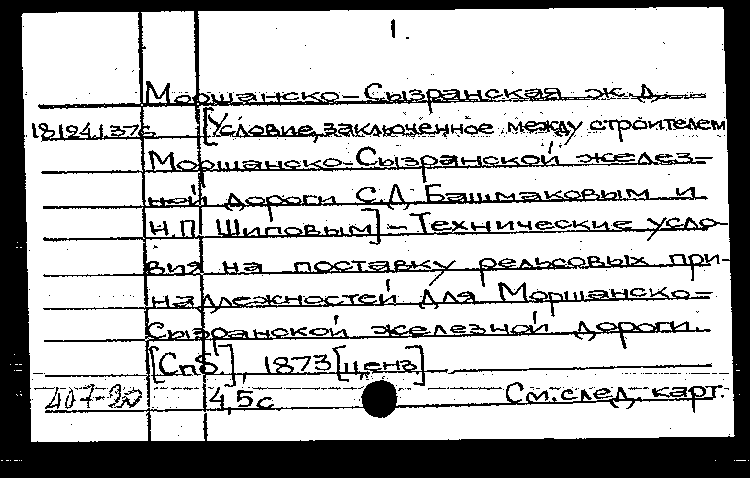 1.
Моршанско-Сызранская ж.д.
18.124.1.37с [Условие, заключенное между строителем
Моршанско-Сызранской желез-
ной дороги С.Д. Башмаковым и
Н.П. Шиповым] - Технические усло-
вия на поставку рельсовых при-
надлежностей для Моршанско-
Сызранской железной дороги.
[Спб.], 1873 [ценз]
407-20 4,5с См. след. карт.